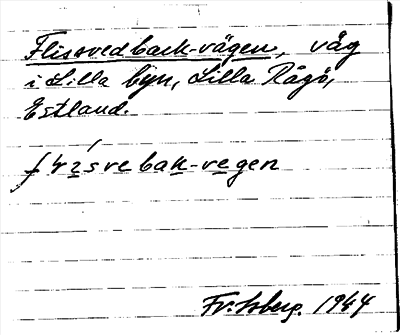 Flissvedback-vägen, väg
i Lilla byn, Lilla Rågö,
Estland.
Fr. Isberg. 1944